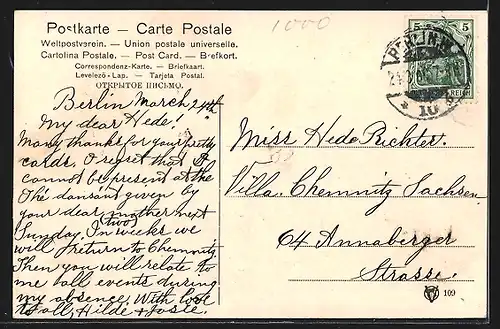 1000
Postkarte — Carte Postale
Weltpostverein. — Union postale universelle.
Cartolina Postale. — Post Card. — Brefkort.
Correspondenz-Karte. — Briefkaart.
Levelező-Lap. — Tarjeta Postal.
ОТКРЫТОЕ ПИСЬМО.
5 5
REICH
BERLIN
10
Berlin March 24th
My dear Hede!
Many thanks for your pretty
cards. I regret that I
cannot be present at the
Thé dansant given by
your dear mother next
Sunday. In two weeks we
will return to Chemnitz.
Then you will relate to
me ball events during
my absence. With love
to all, Hilde &
Miss Hede Richter.
Villa. Chemnitz Sachsen
64 Annaberger
Strasse.
109